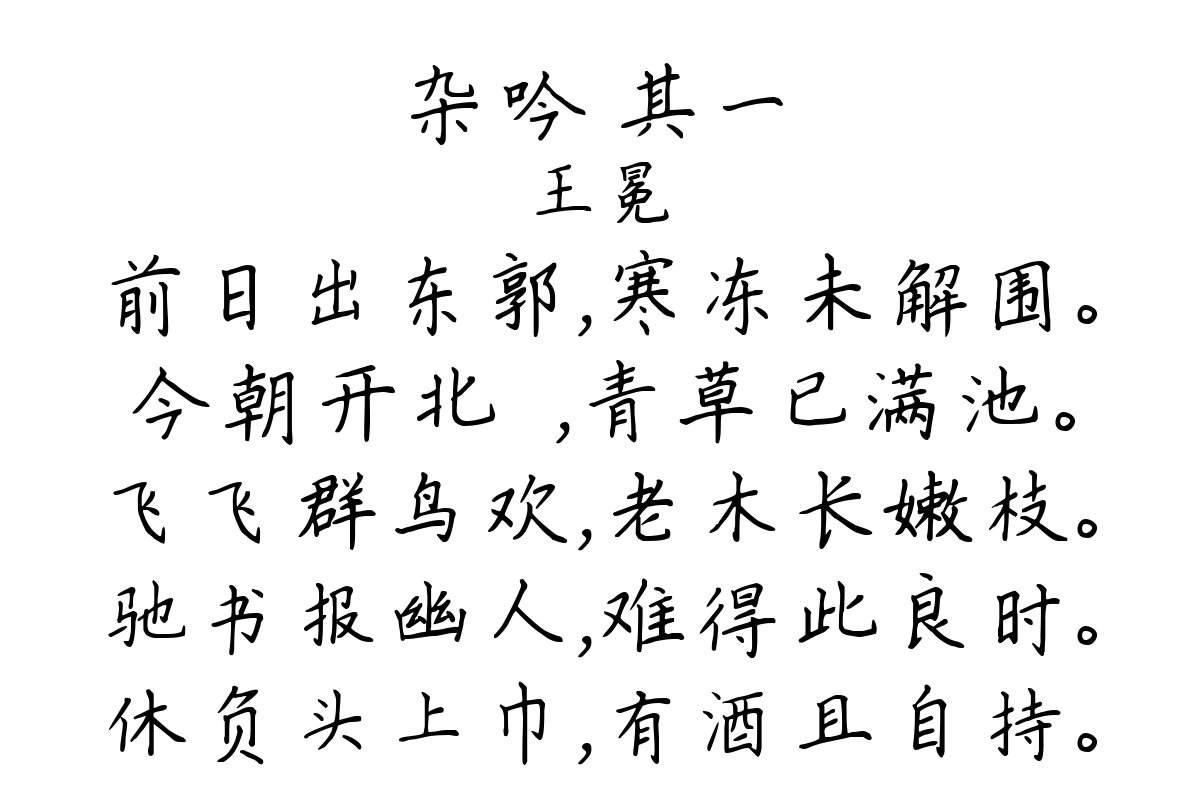 杂吟 其一
王冕
前日出东郭,寒冻未解围。
今朝开北 ,青草已满池。
飞飞群鸟欢,老木长嫩枝。
驰书报幽人,难得此良时。
休负头上巾,有酒且自持。